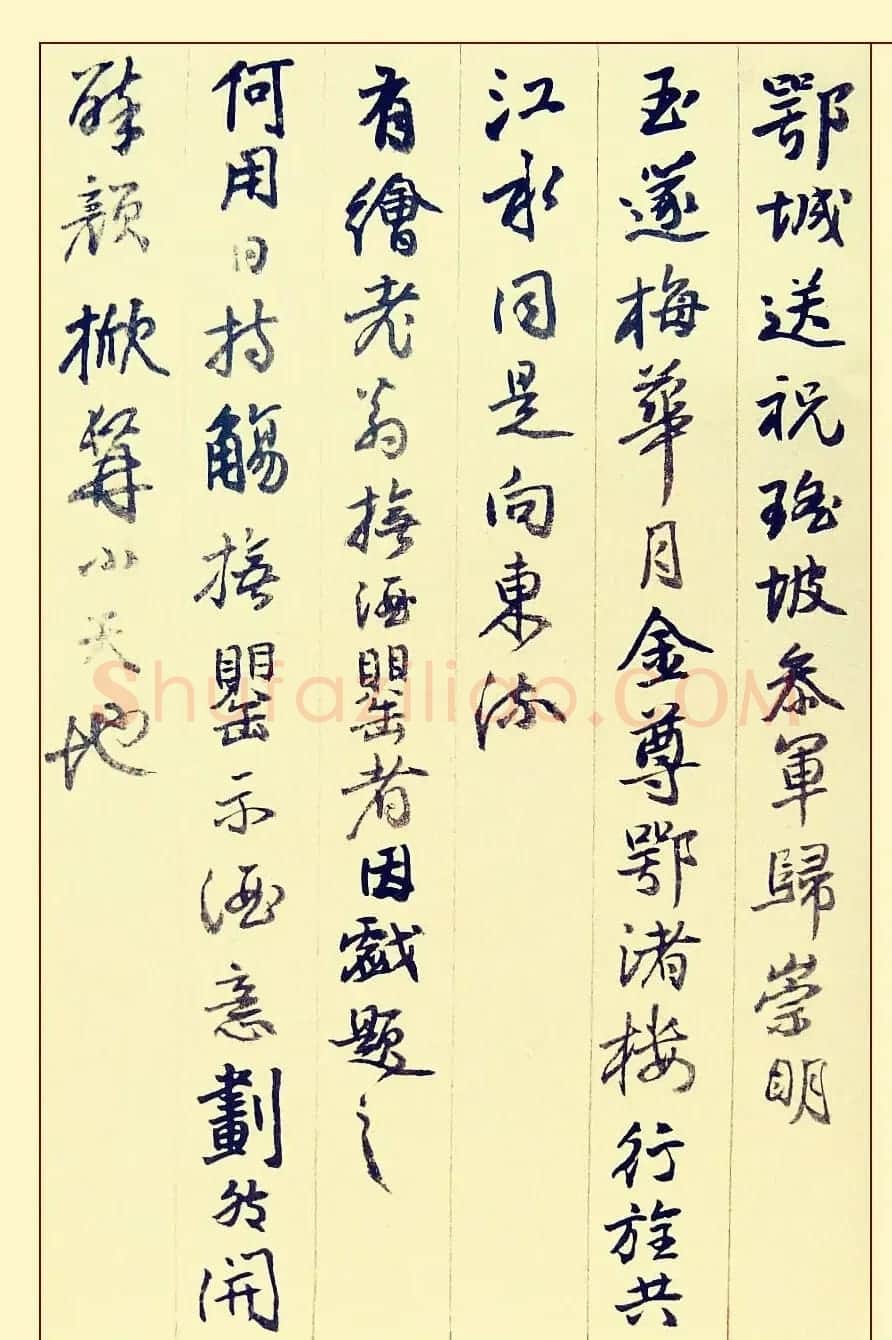 鄂城送祝瑤坡參軍歸崇明
玉邃梅華月金尊鄂渚樓行旌共
江水同是向東流
有繪老翁撫酒罌者因戲題之
何用日持觴撫罌示酒意劃然開
醉顏掀髯小天地
Shufaziliao.COM